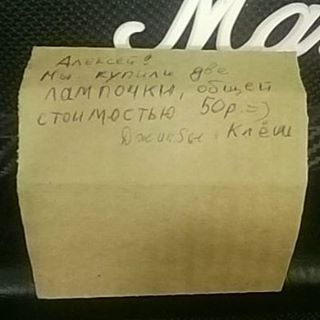 Ма
Алексей!
Мы купили две
лампочки, общей
стоимостью 50р. =)
Джинсы. Клёш